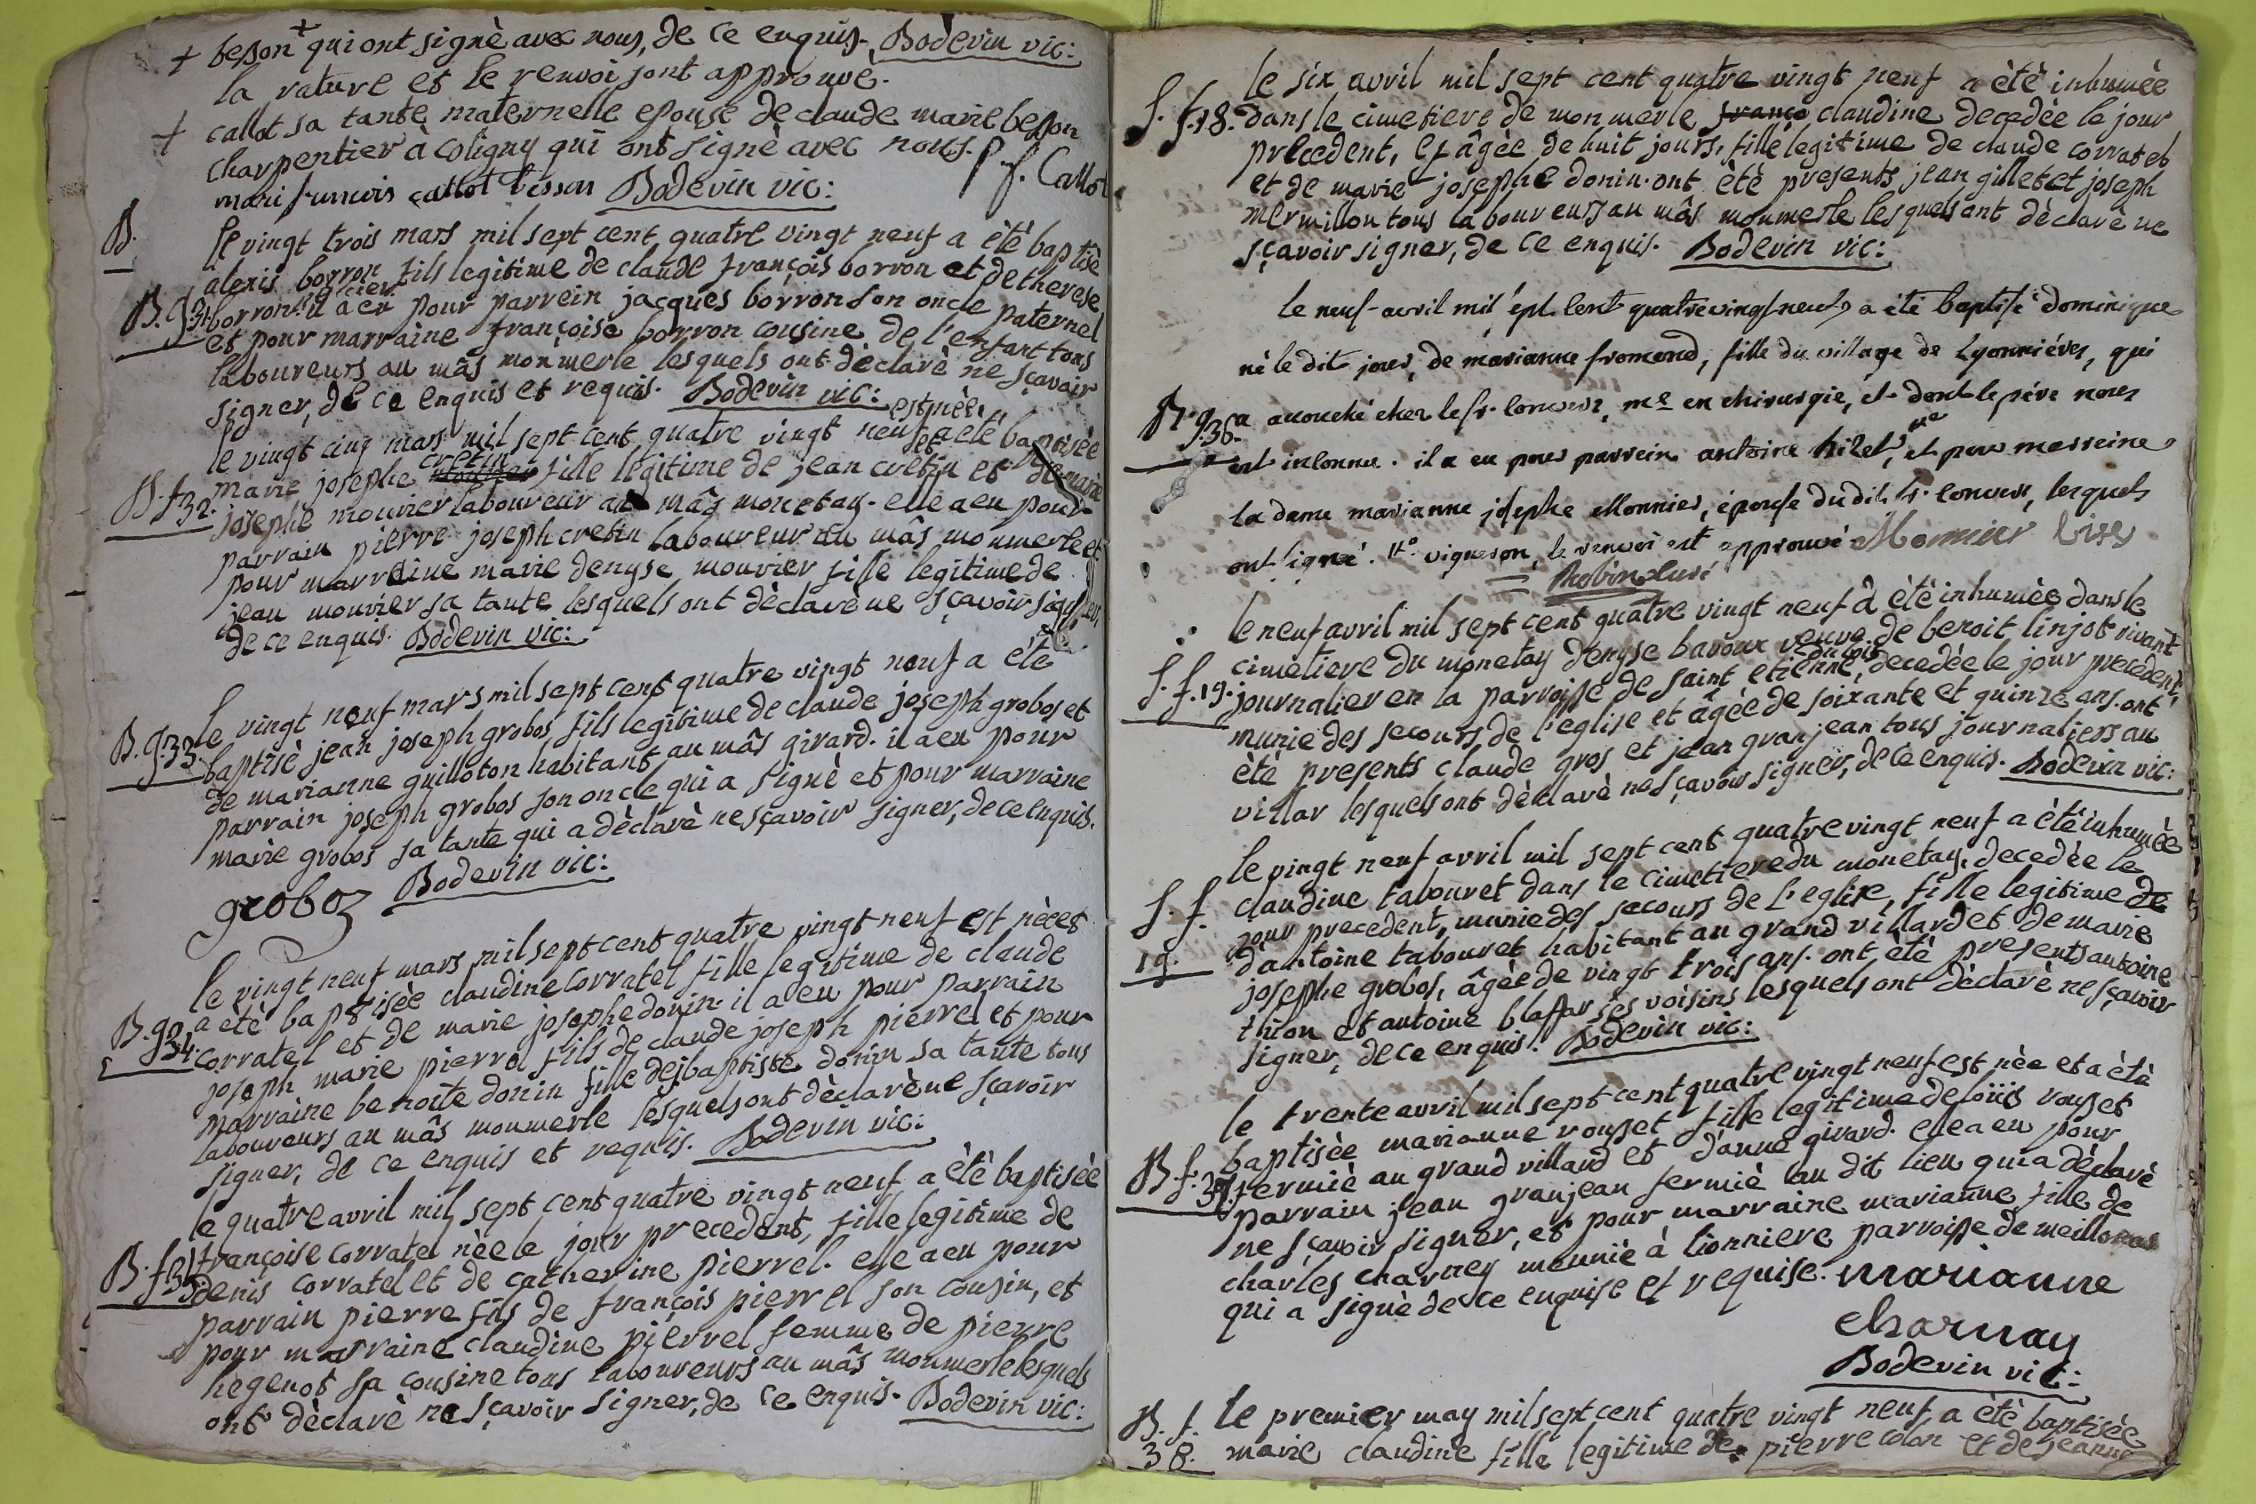 + besson + qui ont signè avec nous, de ce enquis. Bodevin vic:
la rature et le renvoi sont approuvé.
+ callot sa tante maternelle epouse de claude marie besson
charpentier à coligny qui ont signè avec nous. f. Callot
mari francois callot besson Bodevin vic:
B.
le vingt trois mars mil sept cent quatre vingt neuf a étè baptisè
alexis borron fils legitime de claude françois borron et de therese
B. g. 31. borron. il a eu pour parrein jacques borron son oncle paternel
et pour marraine françoise borron cousine de l'enfant tous
laboureurs au mâs monmerle lesquels ont dèclarè ne sçavoir
signer, de ce enquis et requis. Bodevin vic:
est nèe
le vingt cinq mars mil sept cent quatre vingt neuf et a etè baptisèe
B. f. 32. marie josephe cretin fille legitime de jean cretin et de marie
josephe mouvier laboureur au mâs monetay. elle a eu pour
parrain pierre joseph cretin laboureur au mâs monmerle et
pour marreine marie denyse mouvier fille legitime de
jean mouvier sa tante lesquels ont dèclarè ne sçavoir signer,
de ce enquis. Bodevin vic:
le vingt neuf mars mil sept cent quatre vingt neuf a étè
B. g. 33. baptisè jean joseph grobos fils legitime de claude joseph grobos et
de marianne guilloton habitant au mâs girard. il a eu pour
parrain joseph grobos son oncle qui a signè et pour marraine
marie grobos sa tante qui a dèclarè ne sçavoir signer, de ce enquis.
groboz Bodevin vic:
le vingt neuf mars mil sept cent quatre vingt neuf est nèe et
a ètè baptisèe claudine corratel fille legitime de claude
B. g. 34. corratel et de marie josephe donin. il a eu pour parrain
joseph marie pierrel fils de claude joseph pierrel et pour
marraine benoite donin fille de j baptiste donin sa tante tous
laboureurs au mâs monmerle lesquels ont dèclarè ne sçavoir
signer, de ce enquis et requis. Bodevin vic:
le quatre avril mil sept cent quatre vingt neuf a ètè baptisèe
françoise corratel nèe le jour precedent, fille legitime de
B. f. 35. denis corratel et de catherine pierrel. elle a eu pour
parrain pierre fils de françois pierrel son cousin, et
pour marraine claudine pierrel femme de pierre
hegenot sa cousine tous laboureurs au mâs monmerle lesquels
ont dèclarè ne sçavoir signer, de ce enquis. Bodevin vic:
le six avril mil sept cent quatre vingt neuf a ètè inhumèe
S. f. 18. dans le cimetiere de monmerle franço claudine decedèe le jour
precedent, et âgèe de huit jours, fille legitime de claude corratel
et de marie josephe donin. ont ètè presents jean gillet et joseph
mermillon tous laboureurs au mâs monmerle lesquels ont dèclarè ne
sçavoir signer, de ce enquis. Bodevin vic:
le neuf avril mil sept cent quatrevingt neuf, a été baptisé dominique
né le dit jour, de marianne fromend, fille du village de Lyonniéres, qui
B. g. 36. a accouché chez le sr. , me en chirurgie, et dont le pére nous
est inconnu. il a eu pour parrein antoine , et pour marreine
la dame marianne josephe Monnier, épouse du dit sr. , lesquels
ont signé. vigneron, le renvoi est approuvé Monnier
Robin curé
le neuf avril mil sept cent quatre vingt neuf a ètè inhumèe dans le
cimetiere du monetay denyse bavoux veuve de benoit linjot vivant
S. f. 19. journalier en la parroisse de saint etienne du bois, decedèe le jour precedent,
munie des secours de l'eglise et âgèe de soixante et quinze ans. ont
ètè presents claude gros et jean granjean tous journaliers au
villar lesquels ont dèclarè ne sçavoir signer, de ce enquis. Bodevin vic:
le vingt neuf avril mil sept cent quatre vingt neuf a ètè inhumèe
S. f. claudine tabouret dans le cimetiere du monetay, decedèe le
jour precedent, munie des secours de l'eglise, fille legitime de
19. d'antoine tabouret habitant au grand villard et de marie
josephe grobos, âgèe de vingt trois ans. ont ètè presents antoine
thion et antoine blaffar ses voisins lesquels ont dèclarè ne sçavoir
signer, de ce enquis. Bodevin vic:
le trente avril mil sept cent quatre vingt neuf est nèe et a ètè
baptisèe marianne rousset fille legitime de loüis rousset
B. f. 37. fermiè au grand villard et d'anne girard. elle a eu pour
parrain jean granjean fermiè au dit lieu qui a dèclarè
ne sçavoir signer, et pour marraine marianne fille de
charles charney meuniè à lionniere parroisse de meillonas
qui a signè de ce enquise et requise. marianne
charnay
Bodevin vic:
B. f. le premier may mil sept cent quatre vingt neuf a ètè baptisèe
38. marie claudine fille legitime de pierre colon et de jeanne